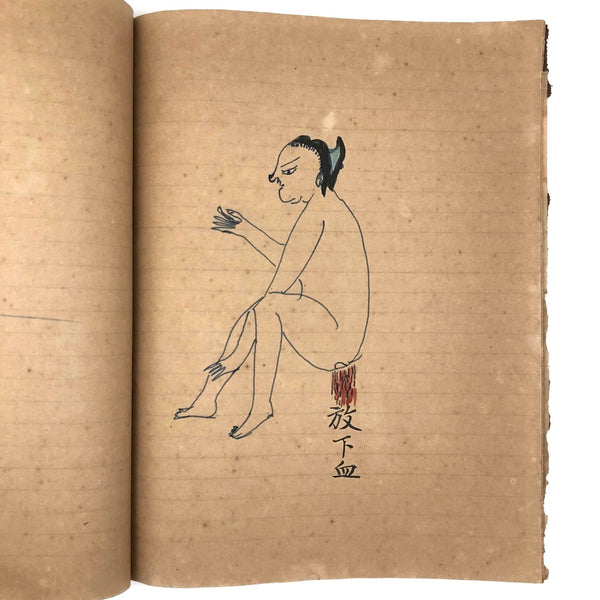 放下血